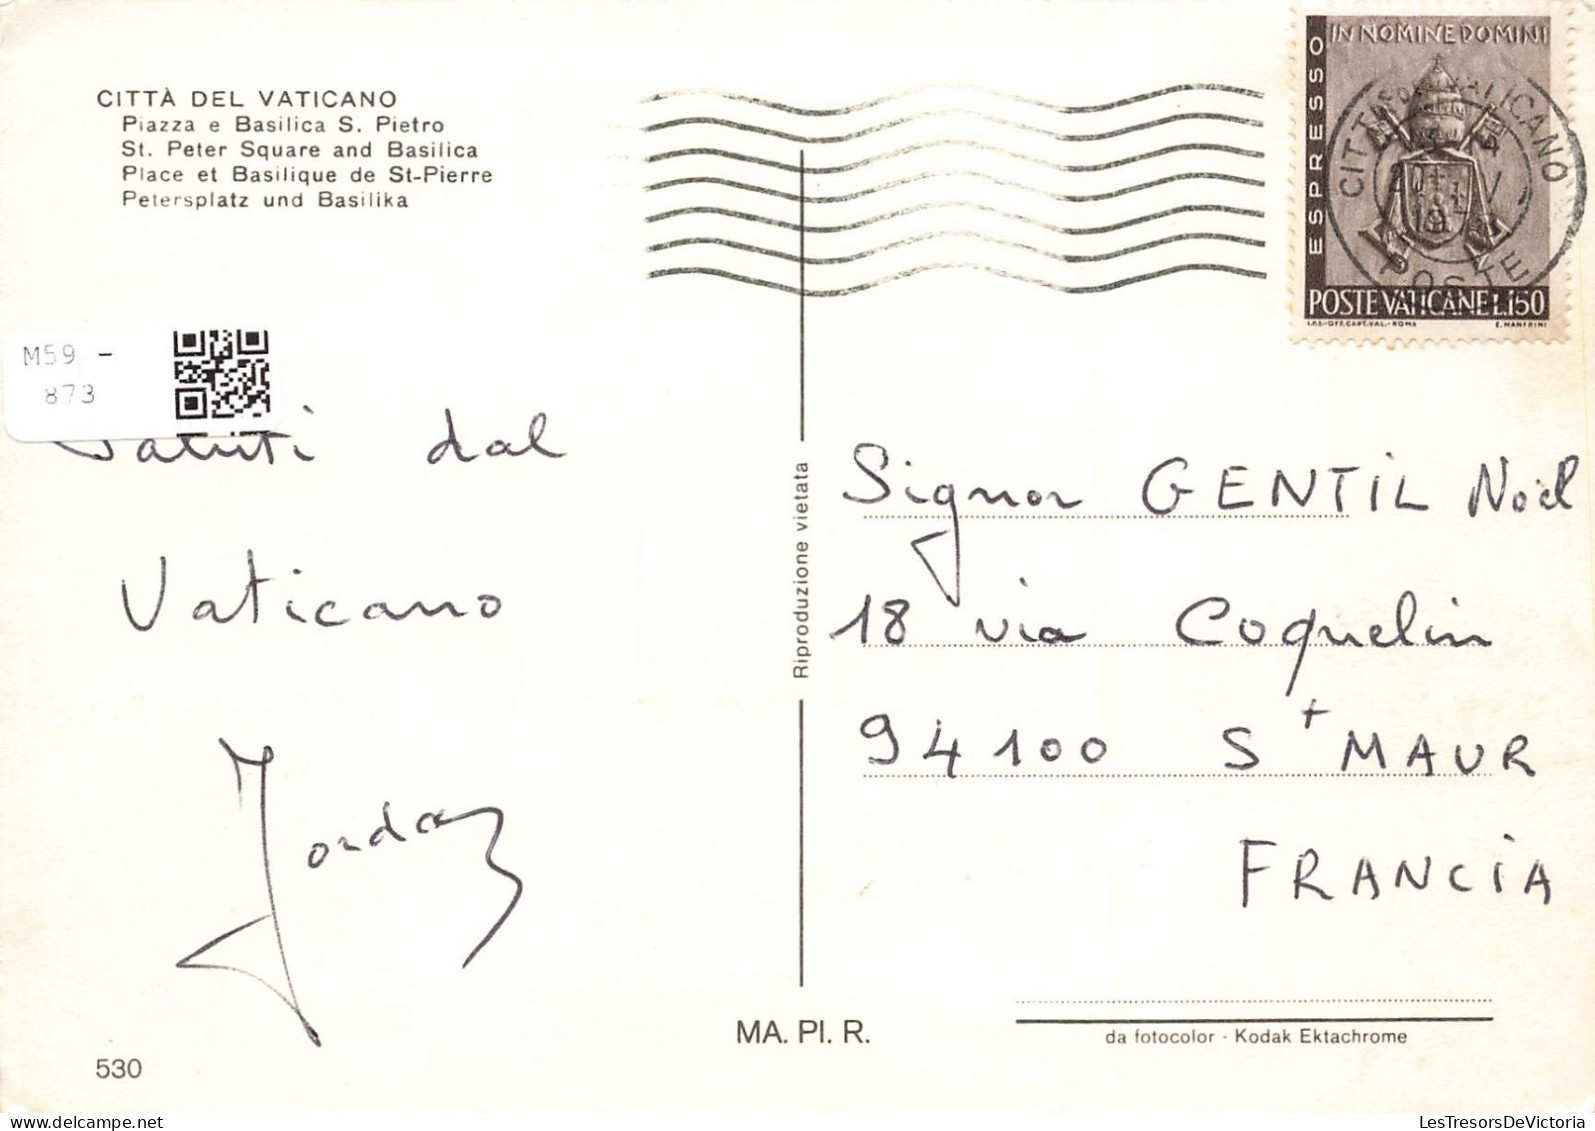 CITTÀ DEL VATICANO
Piazza e Basilica S. Pietro
St. Peter Square and Basilica
Place et Basilique de St-Pierre
Petersplatz und Basilika
IN NOMINE DOMINI
ESPRESSO
POSTE VATICANE L.150
I.P.S.-OFF.CART.VAL.-ROMA
E. MANFRINI
CITTÀ VATICANO
POSTE
M59 -
873
Saluti dal
Vaticano
Riproduzione vietata
Signor GENTIL Noël
18 via Coquelin
94100 St MAUR
FRANCIA
MA. PI. R.
da fotocolor - Kodak Ektachrome
530
LesTresorsDeVictoria